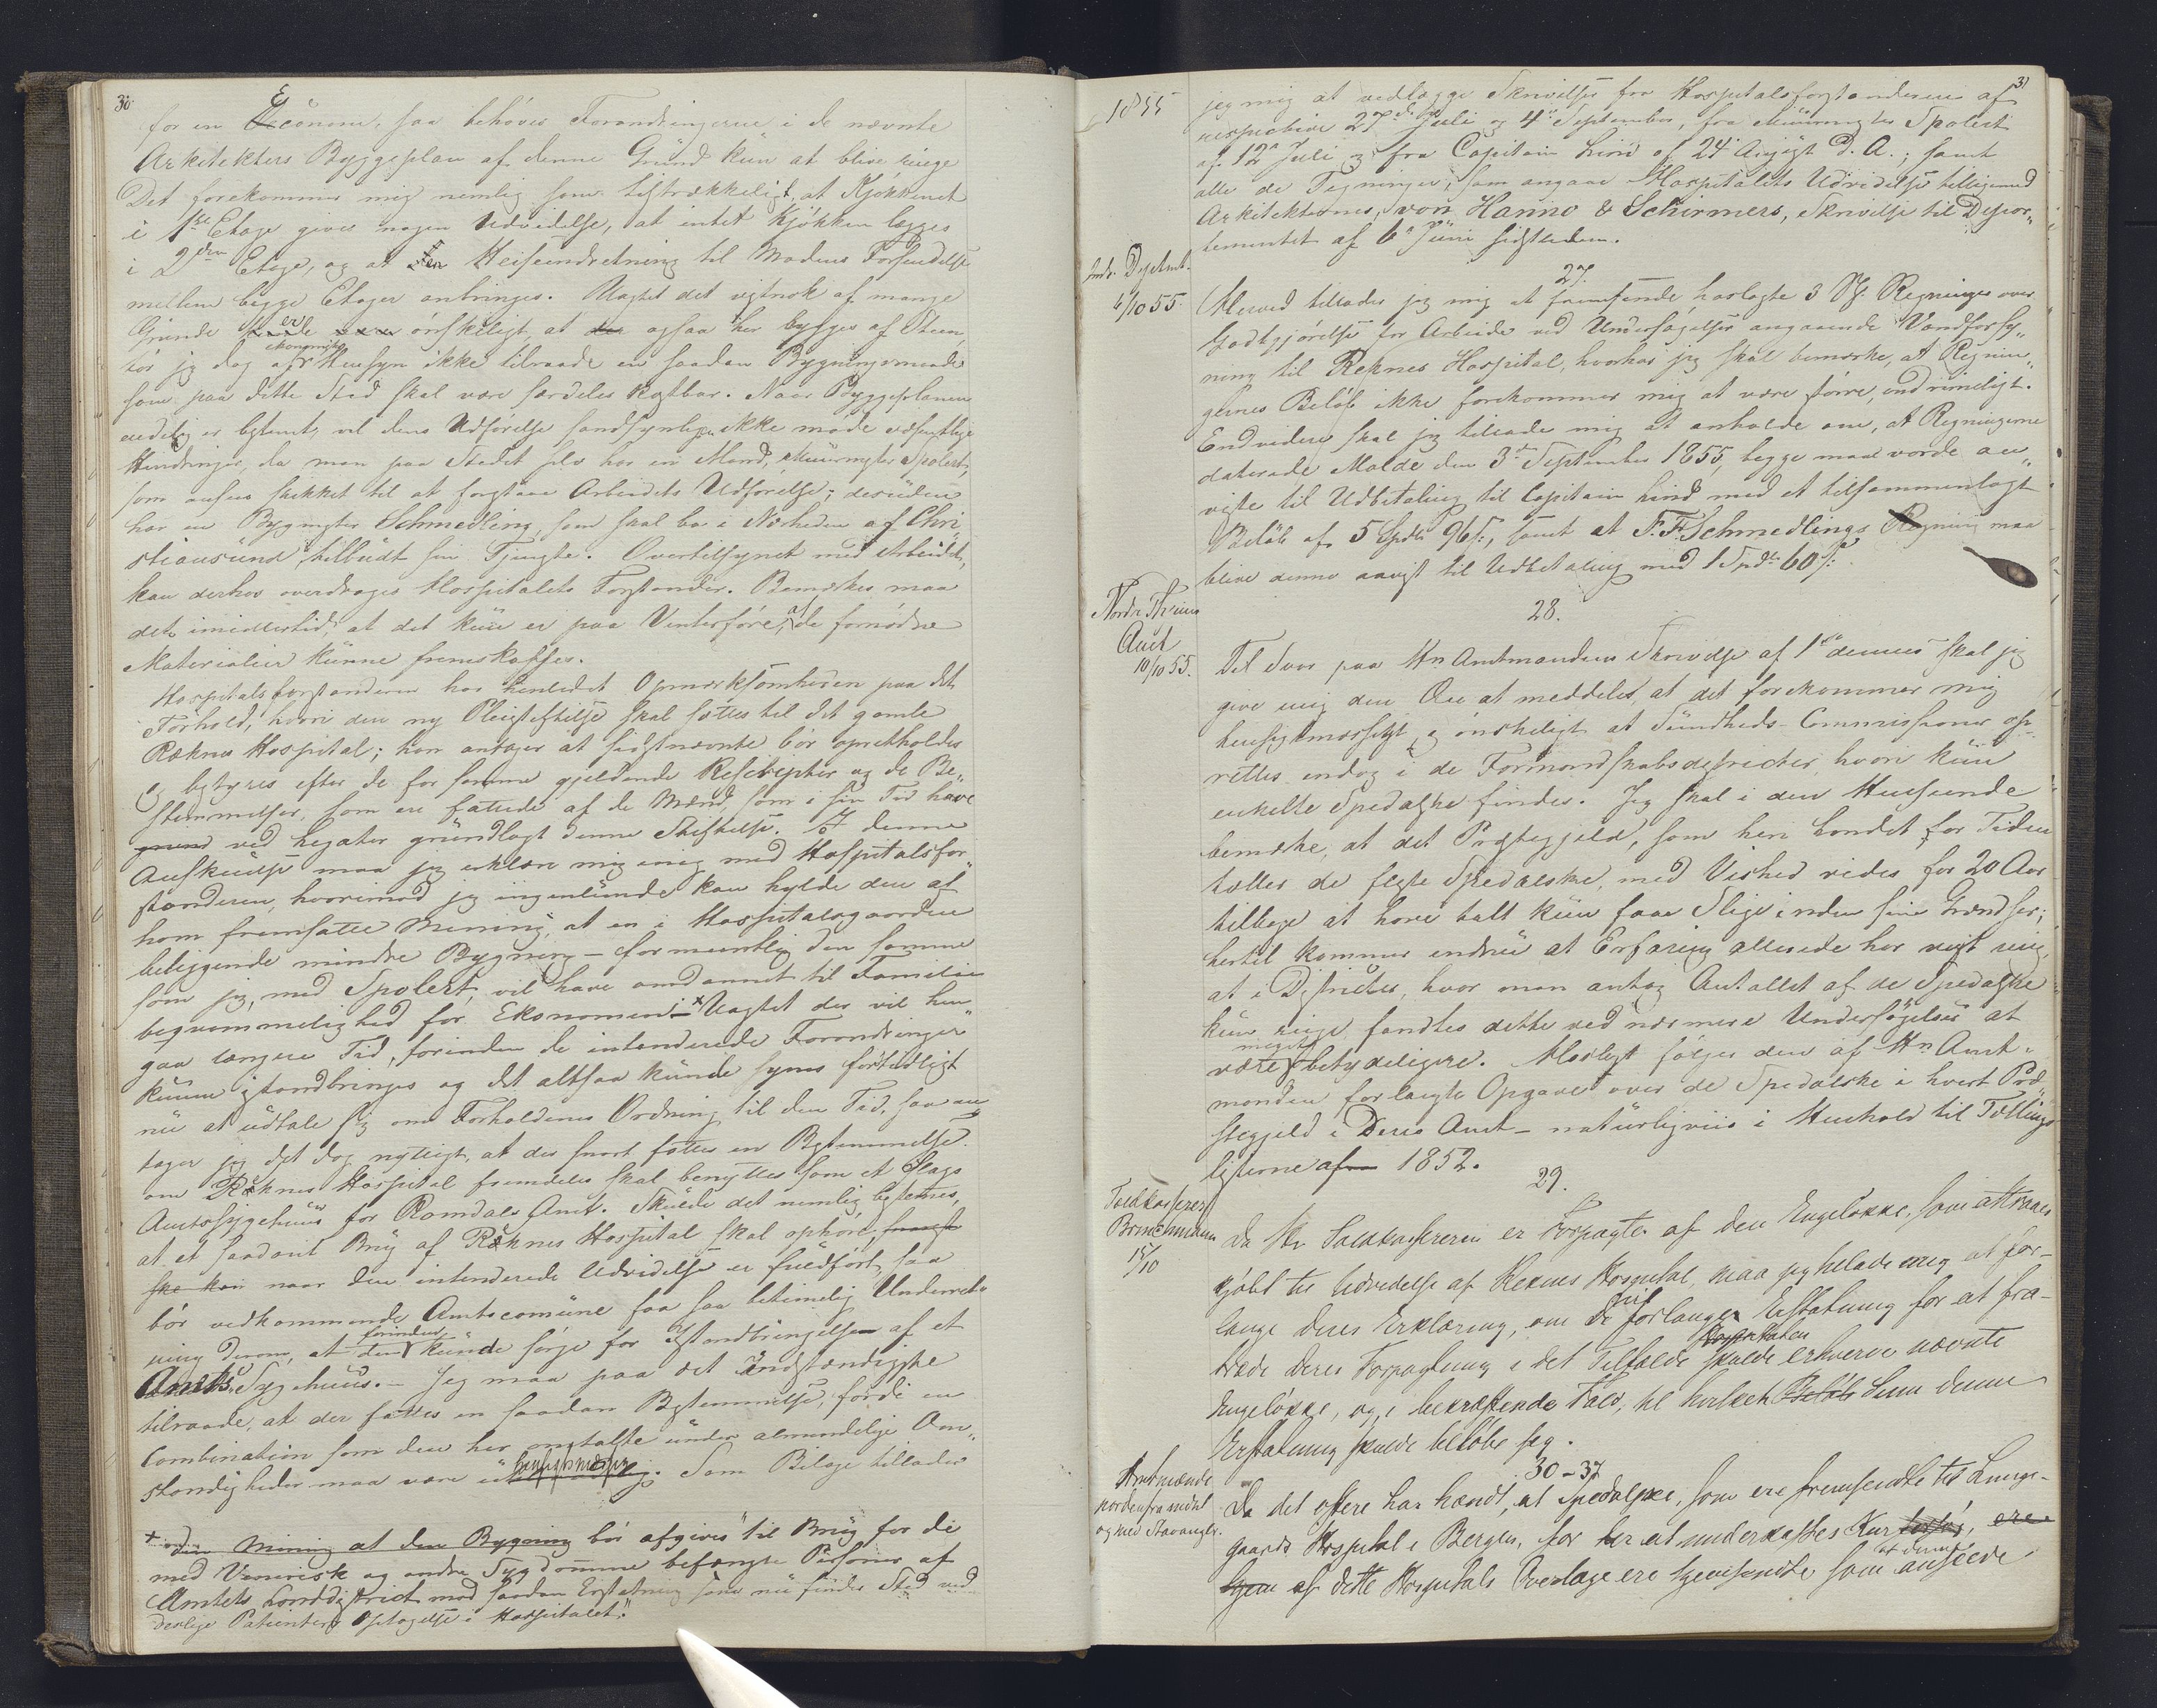 30
for en Econome, saa behøves Forandringerne i de nævnte
Arkitekters Byggeplan af denne Grund kun at blive ringe
Det forekommer mig nemlig som tilstrækkeligt, at Kjøkkenet
i 1ste Etage gives nogen Udvidelse, at intet Kjøkken lægges
i 2den Etage, og at en Heiseindretning til Madens Forsendelse
mellem begge Etager anbringes. Uagtet det vistnok af mange
Grunde er ønskeligt, at ogsaa her bygges af Steen,
tør jeg dog af økonomiske Hensyn ikke tilraade en saadan Bygningsmaade
som paa dette Sted skal være særdeles kostbar. Naar Byggeplanen
endelig er bestemt, vil dens Udførelse sandsynligen ikke møde væsentlige
Hindringer, da man paa Stedet selv har en Mand, Muurmester Spolert,
som ansees skikket til at forestaae Arbeidets Udførelse; desuden
har en Bygmester Schmedling, som skal bo i Nærheden af Chri-
stiansund, tilbudt sin Tjeneste. Overtilsynet med Arbeidet,
kan derhos overdrages Hospitalets Forstander. Bemærkes maa
det imidlertid, at det kun er paa Vinterføre, at de fornødne
Materialier kunne fremskaffes.
Hospitalsforstanderen har henledet Opmærksomheden paa det
Forhold, hvori den ny Pleiestiftelse skal sættes til det gamle
Reknes Hospital; han antager at sidstnævnte bør opretholdes
og bestyres efter de for samme gjeldende Rescripter og de Be-
stemmelser, som ere fattede af de Mænd, som i sin Tid have
grund ved Legater grundlagt denne Stiftelse. I denne
Anskuelse maa jeg erklære mig enig med Hospitalsfor-
standeren, hvorimod jeg ingenlunde kan hylde den af
ham fremsatte Mening, at en i Hospitalsgaarden
beliggende mindre Bygning – formeentlig den samme
som jeg, med Spolert, vil have omdannet til Familie
beqvemmelighed for Ekonomen – x Uagtet der vil hen
gaa længere Tid, forinden de intenderede Forandringer
kunne istandbringes og det altsaa kunde synes fortidligt
nu at udtale sig om Forholdenes Ordning til den Tid, saa an
tager jeg det dog nyttigt, at der snart fattes en Bestemmelse
om Reknes Hospital fremdeles skal benyttes som et Slags
Amtssygehuus for Romsdals Amt. Skulde det nemlig bestemmes,
at et saadant Brug af Reknes Hospital skal ophøre,
naar den intenderede Udvidelse er fuldført, saa
bør vedkommende Amtscomune faa saa betimelig Underret-
ning derom, at den forinden kunde sørge for Istandbringelsen af et
Amts Sygehuus. – Jeg maa paa det indstændigste
tilraade, at der fattes en saadan Bestemmelse, fordi en
Combination som den her omtalte under almindelige Om-
stændigheder maa være uhensigtsmæssig. Som Bilage tillader
x den Mening at den Bygning bør afgives "til Brug for de
med Venerisk og andre Sygdomme befængte Personer af
Amtets Landdistrict mod saadan Erstatning som nu finder Sted ved
deslige Patienters Optagelse i Hospitalet."
31
1855
jeg mig at vedlægge Skrivelser fra Hospitalsforstanderen af
respective 27de Juli og 4de September, fra Muurmester Spolert
af 12te Juli og fra Capitain Lund af 24de August d. A.; samt
alle de Tegninger, som angaae Hospitalets Udvidelse tilligemed
Arkitekternes, von Hanno & Schirmers, Skrivelse til Depar-
tementet af 6te Juni sidstleden.
27.
Indr. Departmt.
6/10 55.
Herved tillader jeg mig at fremsende hoslagte 3 St. Regninger over
Godtgjørelse for Arbeide ved Undersøgelser angaaende Vandforsy-
ning til Reknes Hospital, hvorhos jeg skal bemærke, at Regnin-
gernes Beløb ikke forekommer mig at være større, end rimeligt.
Endvidere skal jeg tillade mig at anholde om, at Regningerne
daterede Molde den 3de September 1855, begge maae vorde an-
viste til Udbetaling til Capitain Lund med et tilsammenlagt
Beløb af 5 Spdlr 96 s., samt at F. Fr. Schmedlings Regning maa
blive denne anvist til Udbetaling med 1 Spdlr 60 s.
28.
Nordr. Thrones
Amt
10/10 55.
Til Svar paa Hr Amtmandens Skrivelse af 1ste dennes skal jeg
give mig den Ære at meddele, at det forekommer mig
hensigtsmæssigt og ønskeligt at Sundheds-Commissioner op-
rettes endog i de Formandskabsdistricter, hvori kun
enkelte Spedalske findes. Jeg skal i den Henseende
bemærke, at det Præstegjeld, som her i Landet for Tiden
tæller de fleste Spedalske, med Vished vides for 20 Aar
tilbage at have talt kun faae Slige inden sine Grændser;
hertil kommer endnu at Erfaring allerede har viist mig,
at i Districter, hvor man antog Antallet af de Spedalske
kun ringe, fandtes dette ved nærmere Undersøgelser at
være meget betydeligere. Hoslagt følger den af Hr Amt-
manden forlangte Opgave over de Spedalske i hvert Præ-
stegjeld i Deres Amt – naturligviis i Henhold til Tællings
listerne af 1852.
29.
Toldkasserer
Bornemann
15/10
Da Hr Toldkassereren er Forpagter af den Engeløkke, som attraaes
kjøbt til Udvidelse af Reknes Hospital, maa jeg tillade mig at for-
lange Deres Erklæring, om De vil forlange Erstatning for at fra-
træde Deres Forpagtning i det Tilfælde Hospitalet skulde erhverve nævnte
Engeløkke, og, i bekræftende Fald, til hvilken Beløb Sum denne
Erstatning skulde beløbe sig.
30–37
Amtmændene
nordenfra indtil
og med Stavanger.
Da det oftere har hændt, at Spedalske, som ere fremsendte til Lunge-
gaards Hospital i Bergen, for her at underkastes Kur, ere
af dette Hospitals Overlæge ere hjemsendte som at denne ansees